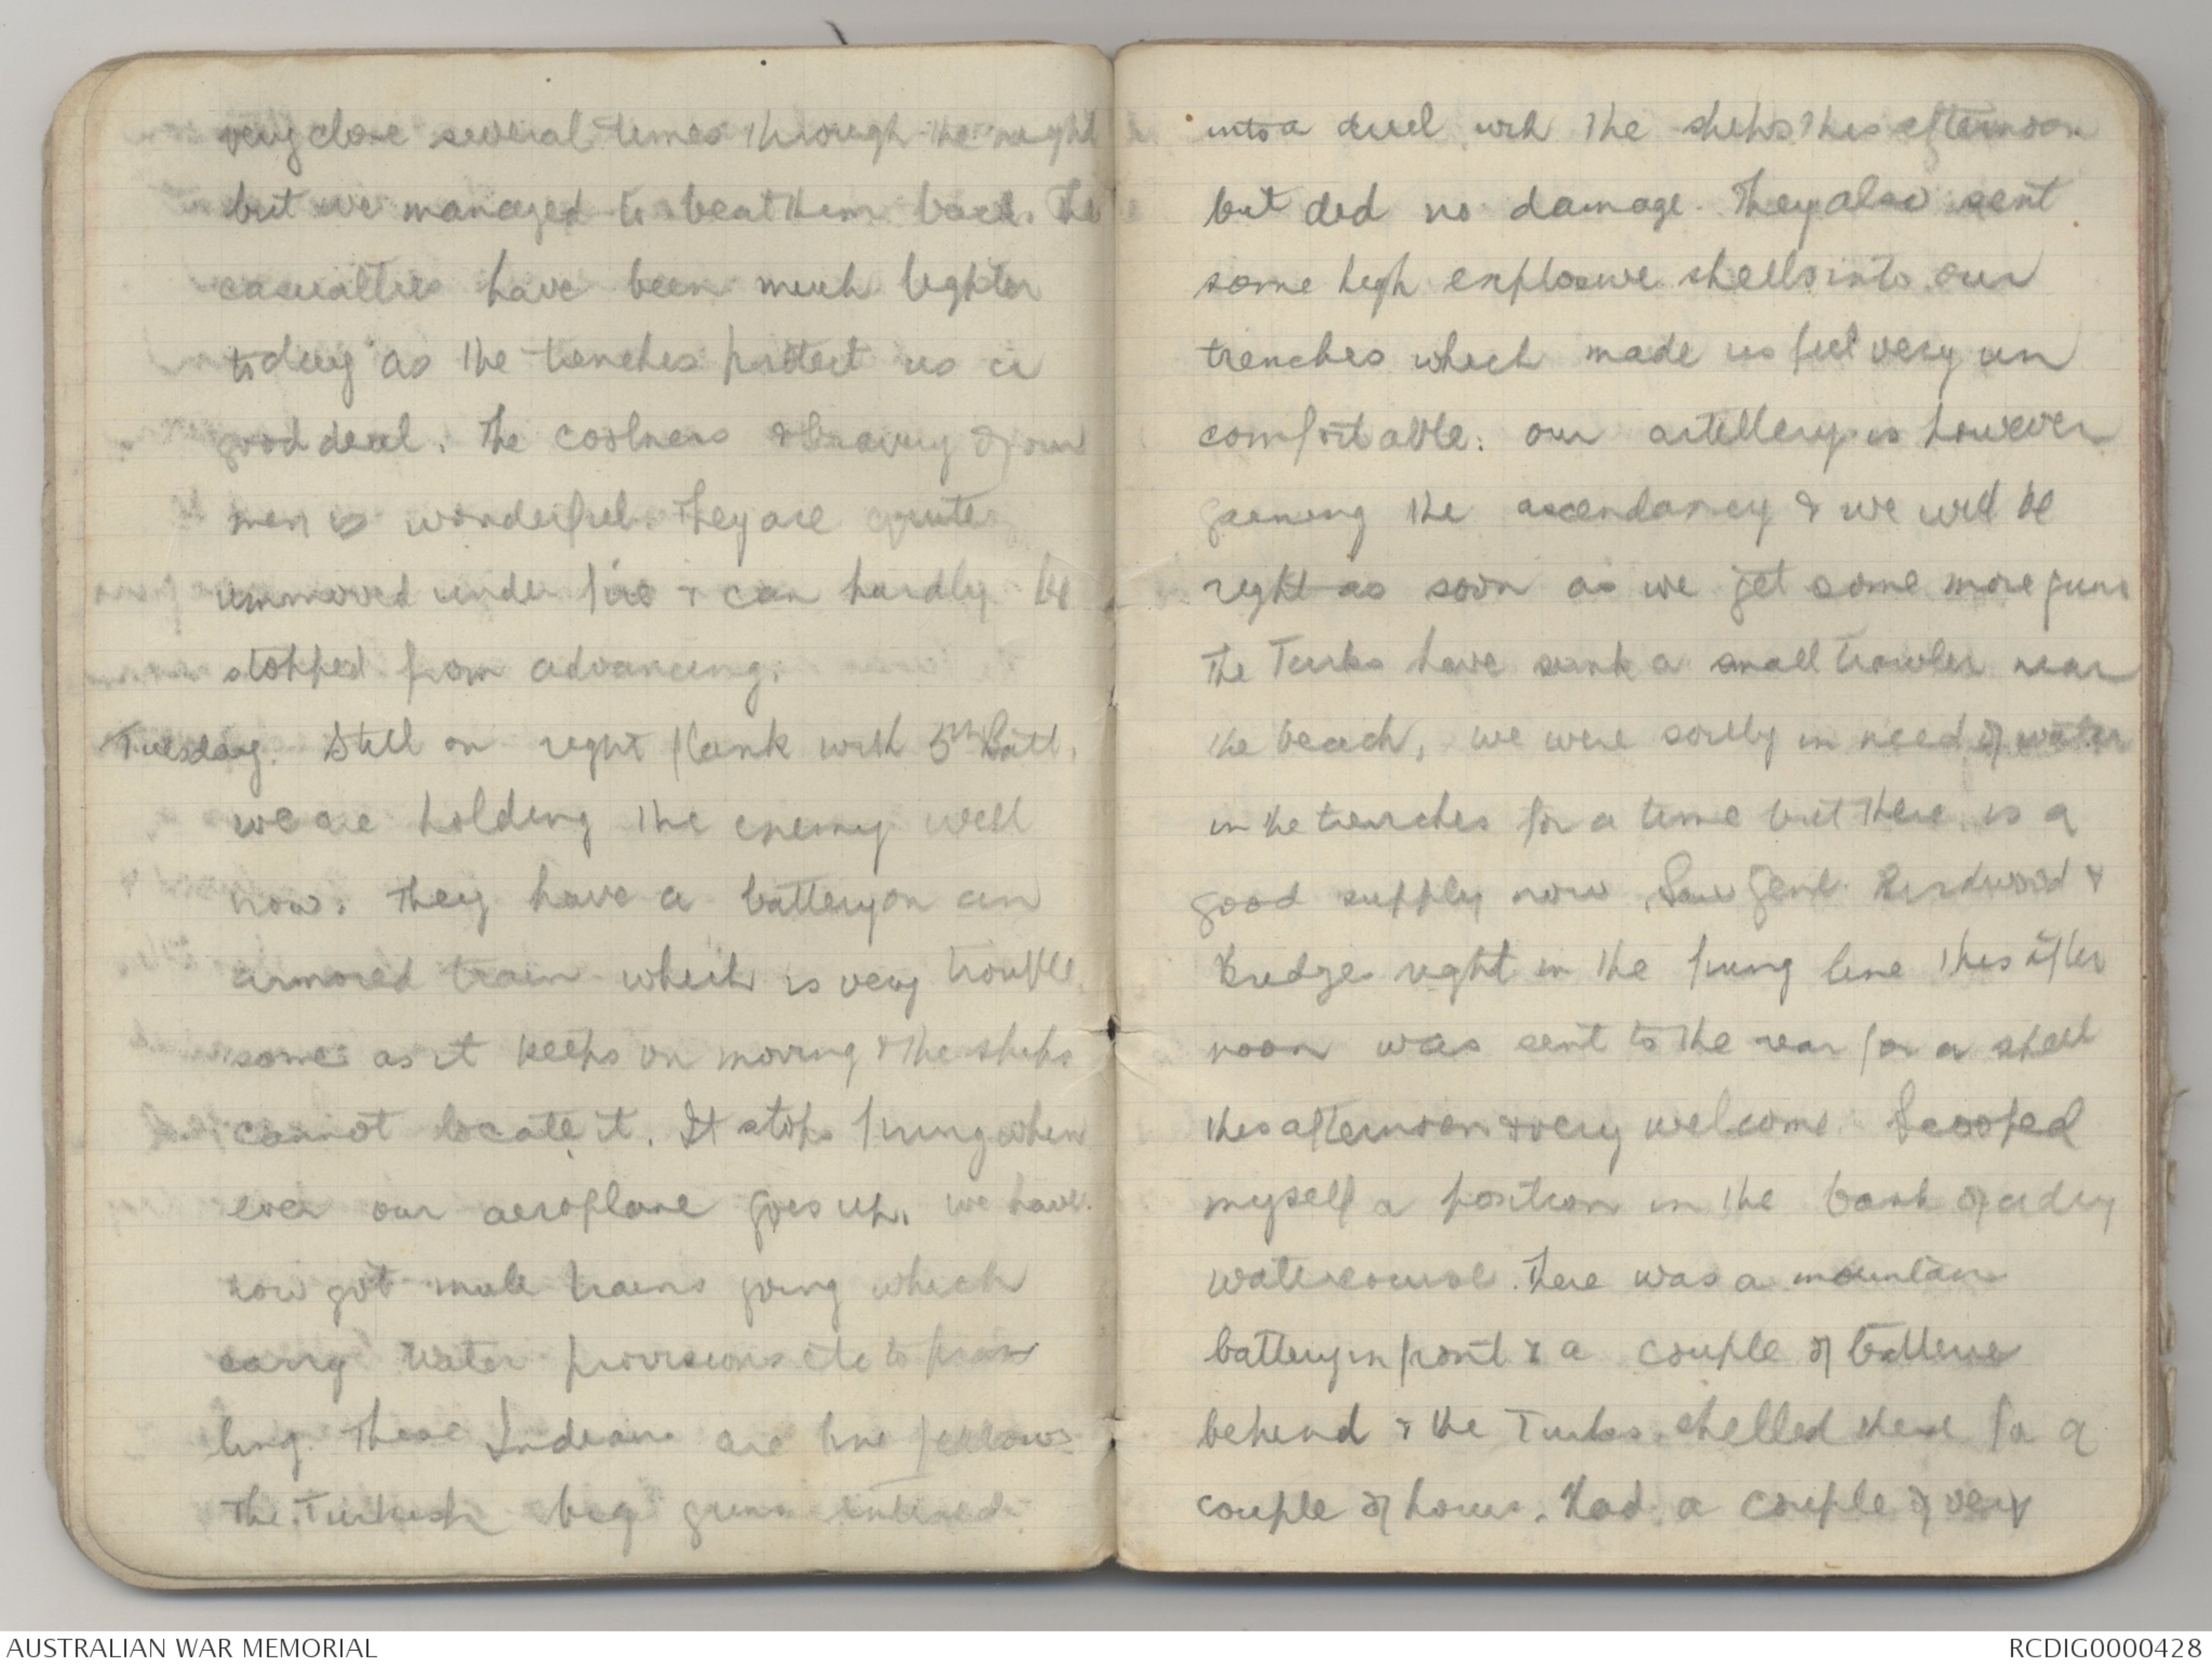 very close several times through the night
but we managed to beat them back. The
casualties have been much lighter
today as the trenches protect us a
good deal. The coolness & bravery of our
men is wonderful. They are quite
unmoved under fire & can hardly be
stopped from advancing.
Tuesday. Still on right flank with 5th Batt.
we are holding the enemy well
now. They have a battery on an
armored train which is very trouble
some as it keeps on moving & the ships
cannot locate it. It stops firing when
ever our aeroplane goes up. we have
now got mule trains going which
carry water provisions etc to firing
line. These Indians are fine fellows
The Turkish big guns entered
into a duel with the ships this afternoon
but did no damage. They also sent
some high explosive shells into our
trenches which made us feel very un
comfortable. our artillery is however
gaining the ascendancy & we will be
right as soon as we get some more guns
The Turks have sunk a small trawler near
the beach, we were sorely in need of water
in the trenches for a time but there is a
good supply now. Saw Genl. Birdwood &
Bridges right in the firing line this after
noon was sent to the rear for a spell
this afternoon & very welcome. Scooped
myself a position in the bank of a dry
watercourse. There was a mountain
battery in front & a couple of batteries
behind & the Turks shelled these for a
couple of hours. Had a couple of very
AUSTRALIAN WAR MEMORIAL
RCDIG0000428